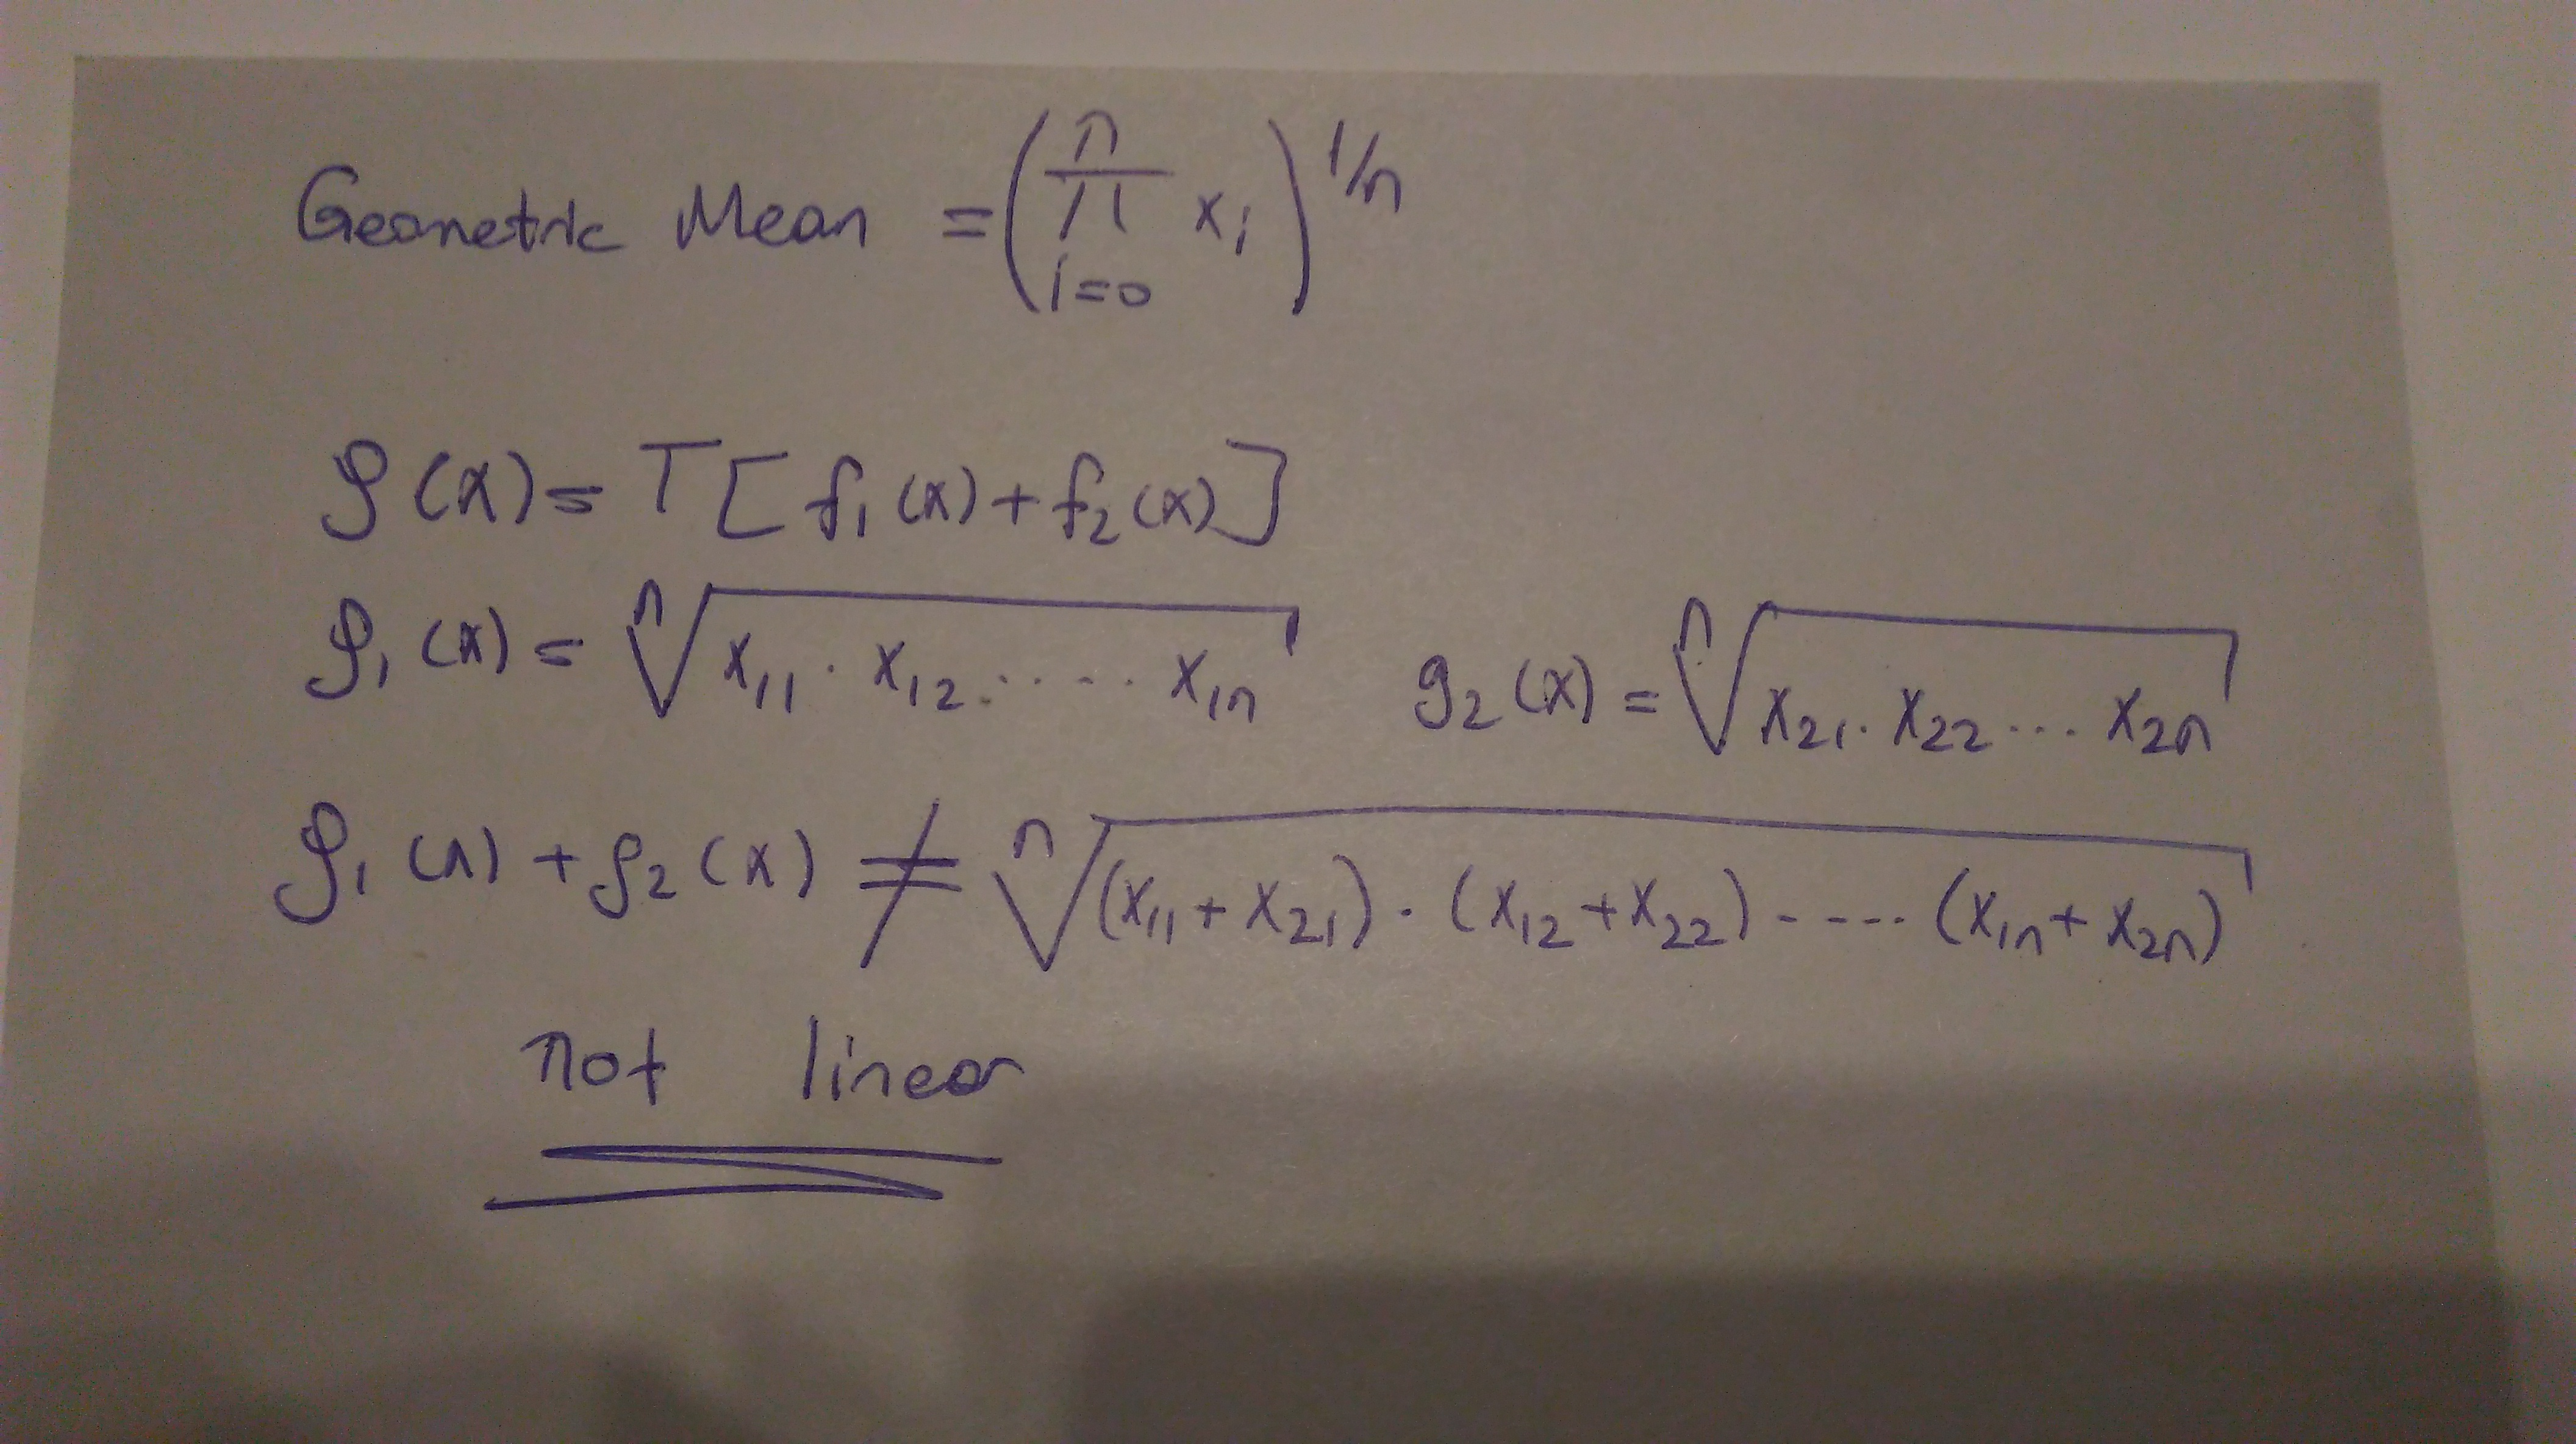 Geometric Mean = (∏_{i=0}^{n} x_i)^{1/n}
g(x) = T[f₁(x) + f₂(x)]
g₁(x) = ⁿ√(x₁₁ · x₁₂ ..... x₁ₙ) g₂(x) = ⁿ√(x₂₁ · x₂₂ ... x₂ₙ)
g₁(x) + g₂(x) ≠ ⁿ√((x₁₁ + x₂₁) · (x₁₂ + x₂₂) ----- (x₁ₙ + x₂ₙ))
not linear